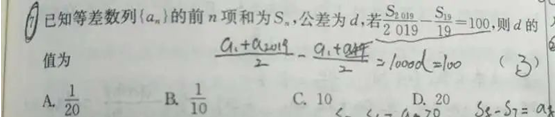 ⑦ 已知等差数列{aₙ}的前 n 项和为 Sₙ,公差为 d,若 S₂₀₁₉/2 019 - S₁₉/19 = 100,则 d 的
值为 (a₁+a₂₀₁₉)/2 - (a₁+a₁₉)/2 = 1000d = 100 ( B )
A. 1/20 B. 1/10 C. 10 D. 20
S₈-S₇=a₈